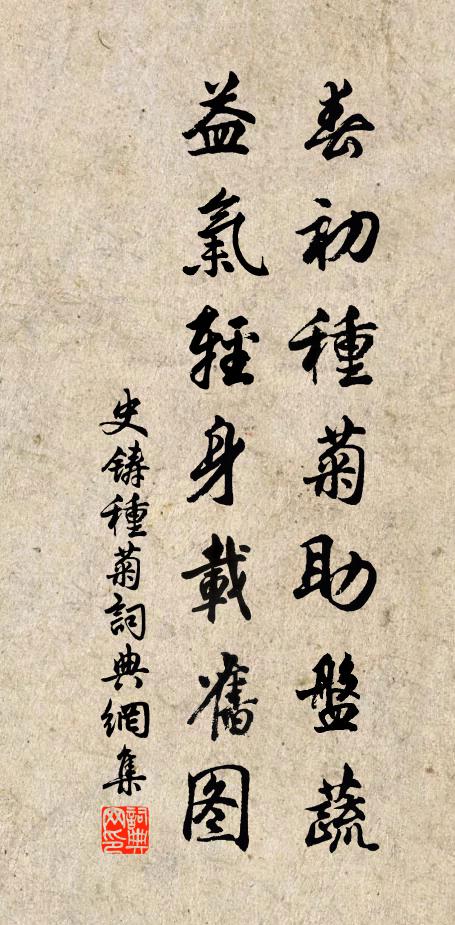 春初種菊助盤蔬
益氣輕身載舊图
史鑄種菊詞典網集
詞典网印